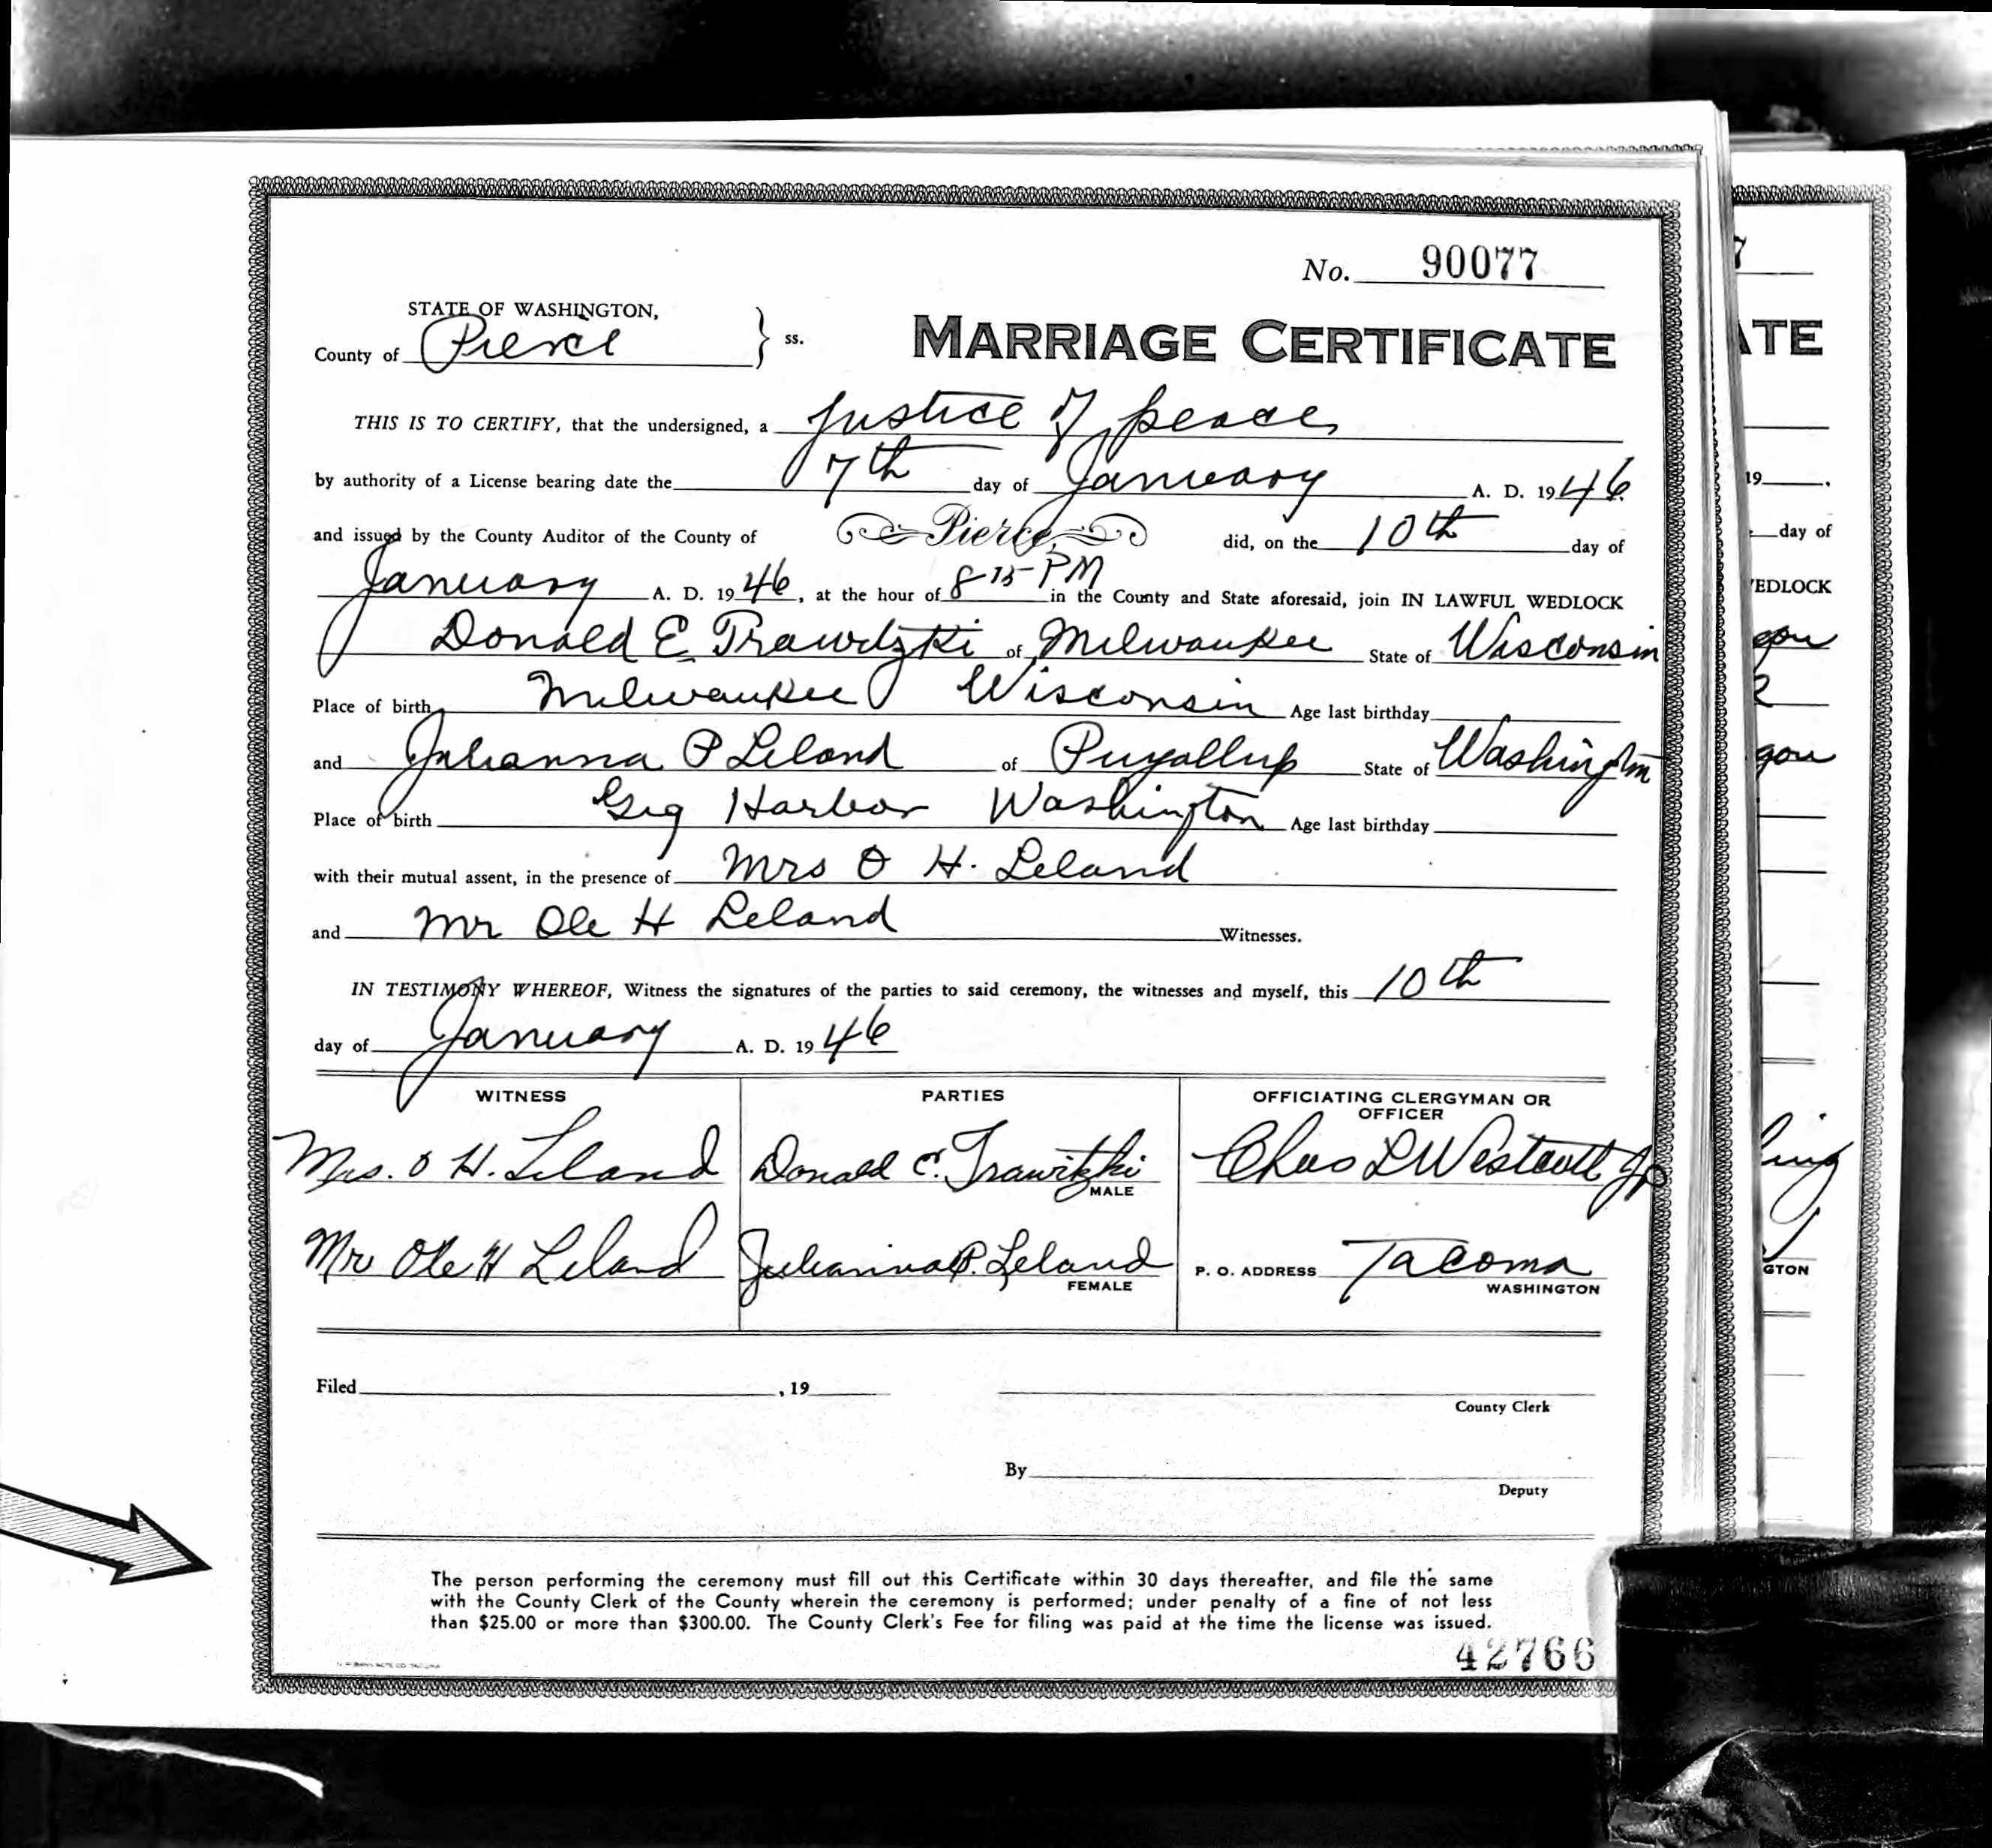 No. 90077
STATE OF WASHINGTON,
County of Pierce } ss.
MARRIAGE CERTIFICATE
THIS IS TO CERTIFY, that the undersigned, a Justice of peace
by authority of a License bearing date the 7th day of January A. D. 1946
and issued by the County Auditor of the County of Pierce, did, on the 10th day of
January A. D. 1946, at the hour of 8-15 PM in the County and State aforesaid, join IN LAWFUL WEDLOCK
Donald E Trawitzki of Milwaukee State of Wisconsin
Place of birth Milwaukee Wisconsin Age last birthday
and Julianna P Leland of Puyallup State of Washington
Place of birth Gig Harbor Washington Age last birthday
with their mutual assent, in the presence of Mrs O H. Leland
and Mr Ole H Leland Witnesses.
IN TESTIMONY WHEREOF, Witness the signatures of the parties to said ceremony, the witnesses and myself, this 10th
day of January A. D. 1946
WITNESS PARTIES OFFICIATING CLERGYMAN OR
OFFICER
Mrs. O H. Leland Donald E. Trawitzki Chas L Westcott Jp
MALE
Mr Ole H Leland Julianna P. Leland P. O. ADDRESS Tacoma
FEMALE WASHINGTON
Filed , 19
County Clerk
By
Deputy
The person performing the ceremony must fill out this Certificate within 30 days thereafter, and file the same
with the County Clerk of the County wherein the ceremony is performed; under penalty of a fine of not less
than $25.00 or more than $300.00. The County Clerk's Fee for filing was paid at the time the license was issued.
42766
7
ATE
19 .
day of
WEDLOCK
gon
gon
GTON